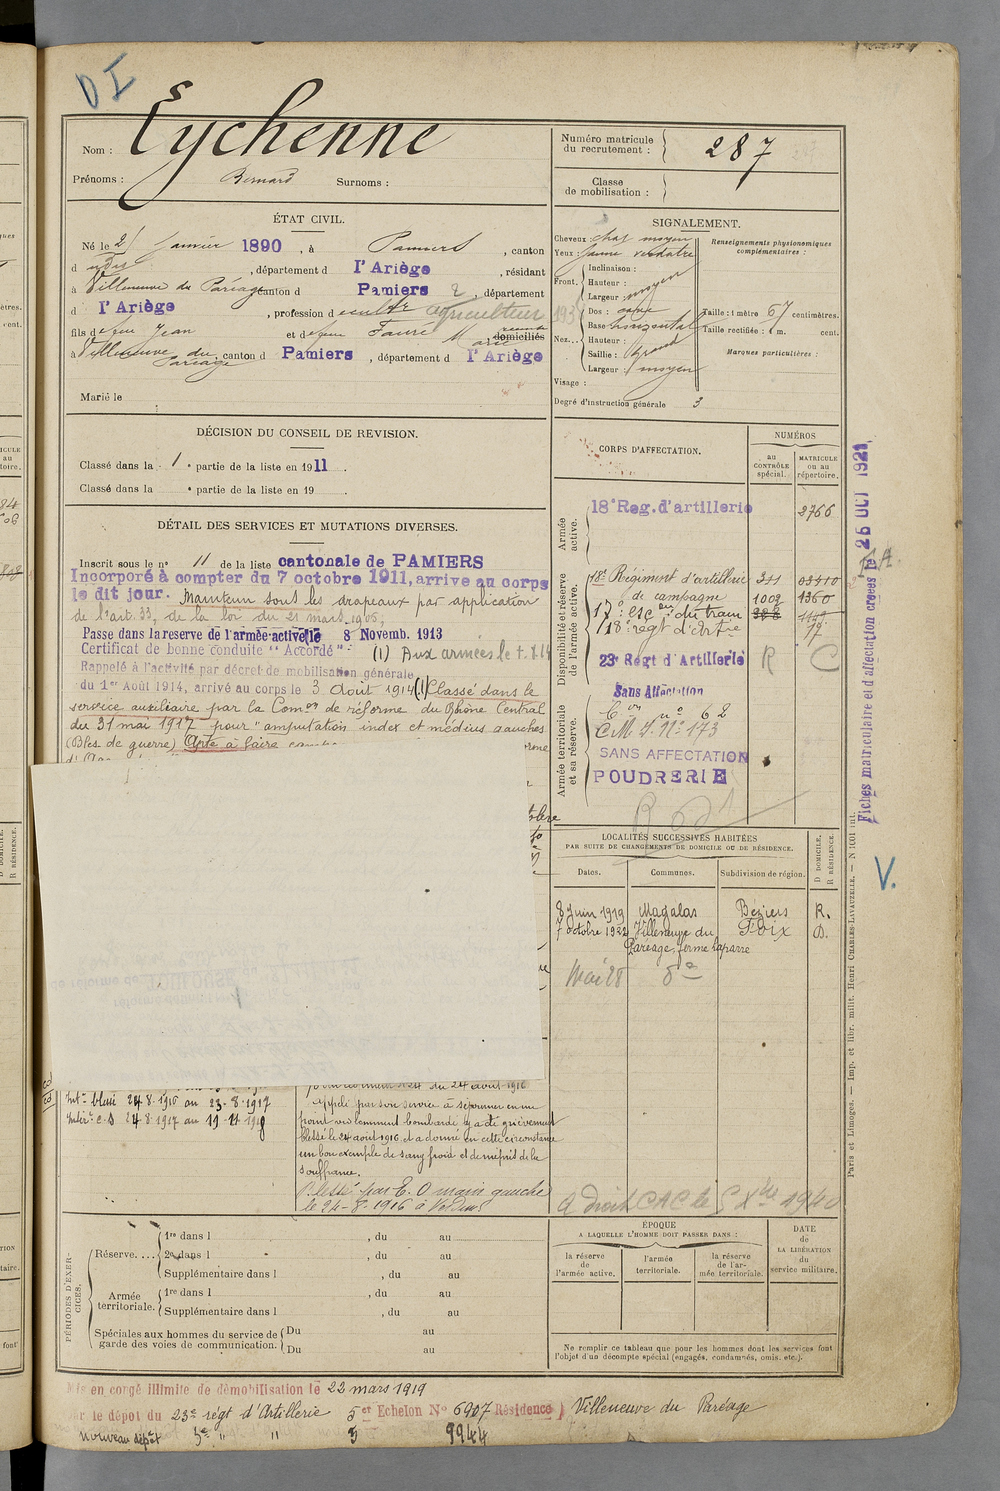 D I
Nom : Eychenne
Prénoms : Bernard Surnoms :
Numéro matricule du recrutement : 287
Classe de mobilisation :
ÉTAT CIVIL.
Né le 21 Janvier 1890, à Pamiers, canton
d udit, département d l'Ariège, résidant
à Villeneuve du Paréage canton d Pamiers, département
d l'Ariège, profession d cultr agriculteur
fils de feu Jean et de feue Faure Marie domiciliés
à Villeneuve du Paréage canton d Pamiers, département d l'Ariège
Marié le
SIGNALEMENT.
Cheveux : chat moyen
Yeux : jaune verdatre
Front. Inclinaison :
Hauteur :
Largeur : moyen
Nez... Dos : cave
Base horizontal
Hauteur :
Saillie : grand
Largeur : moyen
Visage :
Degré d'instruction générale 3
Renseignements physionomiques complémentaires :
Taille : 1 mètre 67 centimètres.
Taille rectifiée : 1 m. cent.
Marques particulières :
DÉCISION DU CONSEIL DE REVISION.
Classé dans la 1e partie de la liste en 1911.
Classé dans la e partie de la liste en 19 .
DÉTAIL DES SERVICES ET MUTATIONS DIVERSES.
Inscrit sous le n° 11 de la liste cantonale de PAMIERS
Incorporé à compter du 7 octobre 1911, arrive au corps
le dit jour. Maintenu sous les drapeaux par application
de l'art. 33, de la loi du 21 mars 1905,
Passe dans la reserve de l'armée active le 8 Novemb. 1913
Certificat de bonne conduite "Accordé" (1) Aux armées le
Rappelé à l'activité par décret de mobilisation générale
du 1er Août 1914, arrivé au corps le 3 Août 1914 (1) Classé dans le
service auxiliaire par la Comon de réforme du Rhône Central
du 31 mai 1917 pour "amputation index et médius gauches
(Bles. de guerre) Apte à faire
Int. blessé 24-8-1916 au 23-8-1917
Intér. c.s 24-8-1917 au 19-11-1918
du 24 août 1916
appelé par son service à séjourner en un
point violemment bombardé y a été grièvement
blessé le 24 août 1916 et a donné en cette circonstance
un bon exemple de sang froid et de mépris de la
souffrance.
Blessé par E. O main gauche
le 24-8-1916 à Verdun
CORPS D'AFFECTATION.
NUMÉROS
au CONTRÔLE spécial.
MATRICULE ou au répertoire.
Armée active.
18e Reg. d'artillerie 2766
Disponibilité et réserve de l'armée active.
18e Régiment d'artillerie 311 03510
de campagne 1009 1360
17e esc on du train 328
118e régt d'artie 77
23e Regt d'Artillerie R C
Armée territoriale et sa réserve.
Sans Affectation
n° 62
C M I. N° 173
SANS AFFECTATION
POUDRERIE
LOCALITÉS SUCCESSIVES HABITÉES
PAR SUITE DE CHANGEMENTS DE DOMICILE OU DE RÉSIDENCE.
Dates. Communes. Subdivision de région. D DOMICILE. R RÉSIDENCE.
8 juin 1919 Magalas Béziers R.
7 octobre 1922 Villeneuve du Paréage, ferme Laparre Foix D.
Mai 28 do
A droit CAC le 1940
Fiches matriculaire et d'affectation créées le 26 OCT 1921
V.
Paris et Limoges. — Imp. et libr. milit. Henri CHARLES-LAVAUZELLE. — N 1001 int.
PÉRIODES D'EXERCICES.
Réserve.... 1re dans l , du au
2e dans l , du au
Supplémentaire dans l , du au
Armée territoriale. 1re dans l , du au
Supplémentaire dans l , du au
Spéciales aux hommes du service de garde des voies de communication. Du au
Du au
ÉPOQUE
A LAQUELLE L'HOMME DOIT PASSER DANS :
la réserve de l'armée active.
l'armée territoriale.
la réserve de l'armée territoriale.
DATE de LA LIBÉRATION du service militaire.
Ne remplir ce tableau que pour les hommes dont les services font
l'objet d'un décompte spécial (engagés, condamnés, omis, etc.).
Mis en congé illimité de démobilisation le 22 mars 1919
par le dépôt du 23e régt d'Artillerie 5er Echelon N° 6907 Résidence Villeneuve du Paréage
nouveau dépôt 3e " " 3 9944